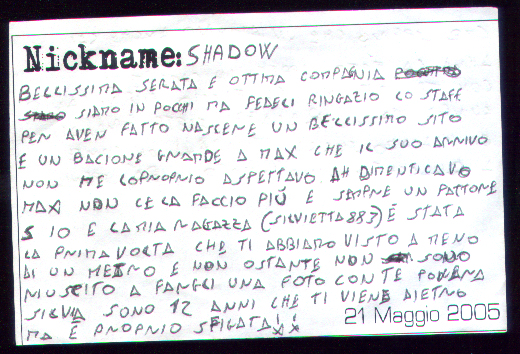 Nickname: SHADOW
BELLISSIMA SERATA E OTTIMA COMPAGNIA
SIAMO IN POCHI MA FEDELI RINGAZIO LO STAFF
PER AVER FATTO NASCERE UN BELLISSIMO SITO
E UN BACIONE GRANDE A MAX CHE IL SUO ARRIVO
NON ME LOPROPRIO ASPETTAVO AH DIMENTICAVO
MAX NON CE LA FACCIO PIÚ E SEMPRE UN FATTONE
S IO E LA MIA RAGAZZA (SILVIETTA883) É STATA
LA PRIMA VOLTA CHE TI ABBIAMO VISTO A MENO
DI UN METRO E NON OSTANTE NON SONO
RIUSCITO A FARGLI UNA FOTO CON TE POVERA
SILVIA SONO 12 ANNI CHE TI VIENE DIETRO
MA É PROPRIO SFIGATA!!
21 Maggio 2005